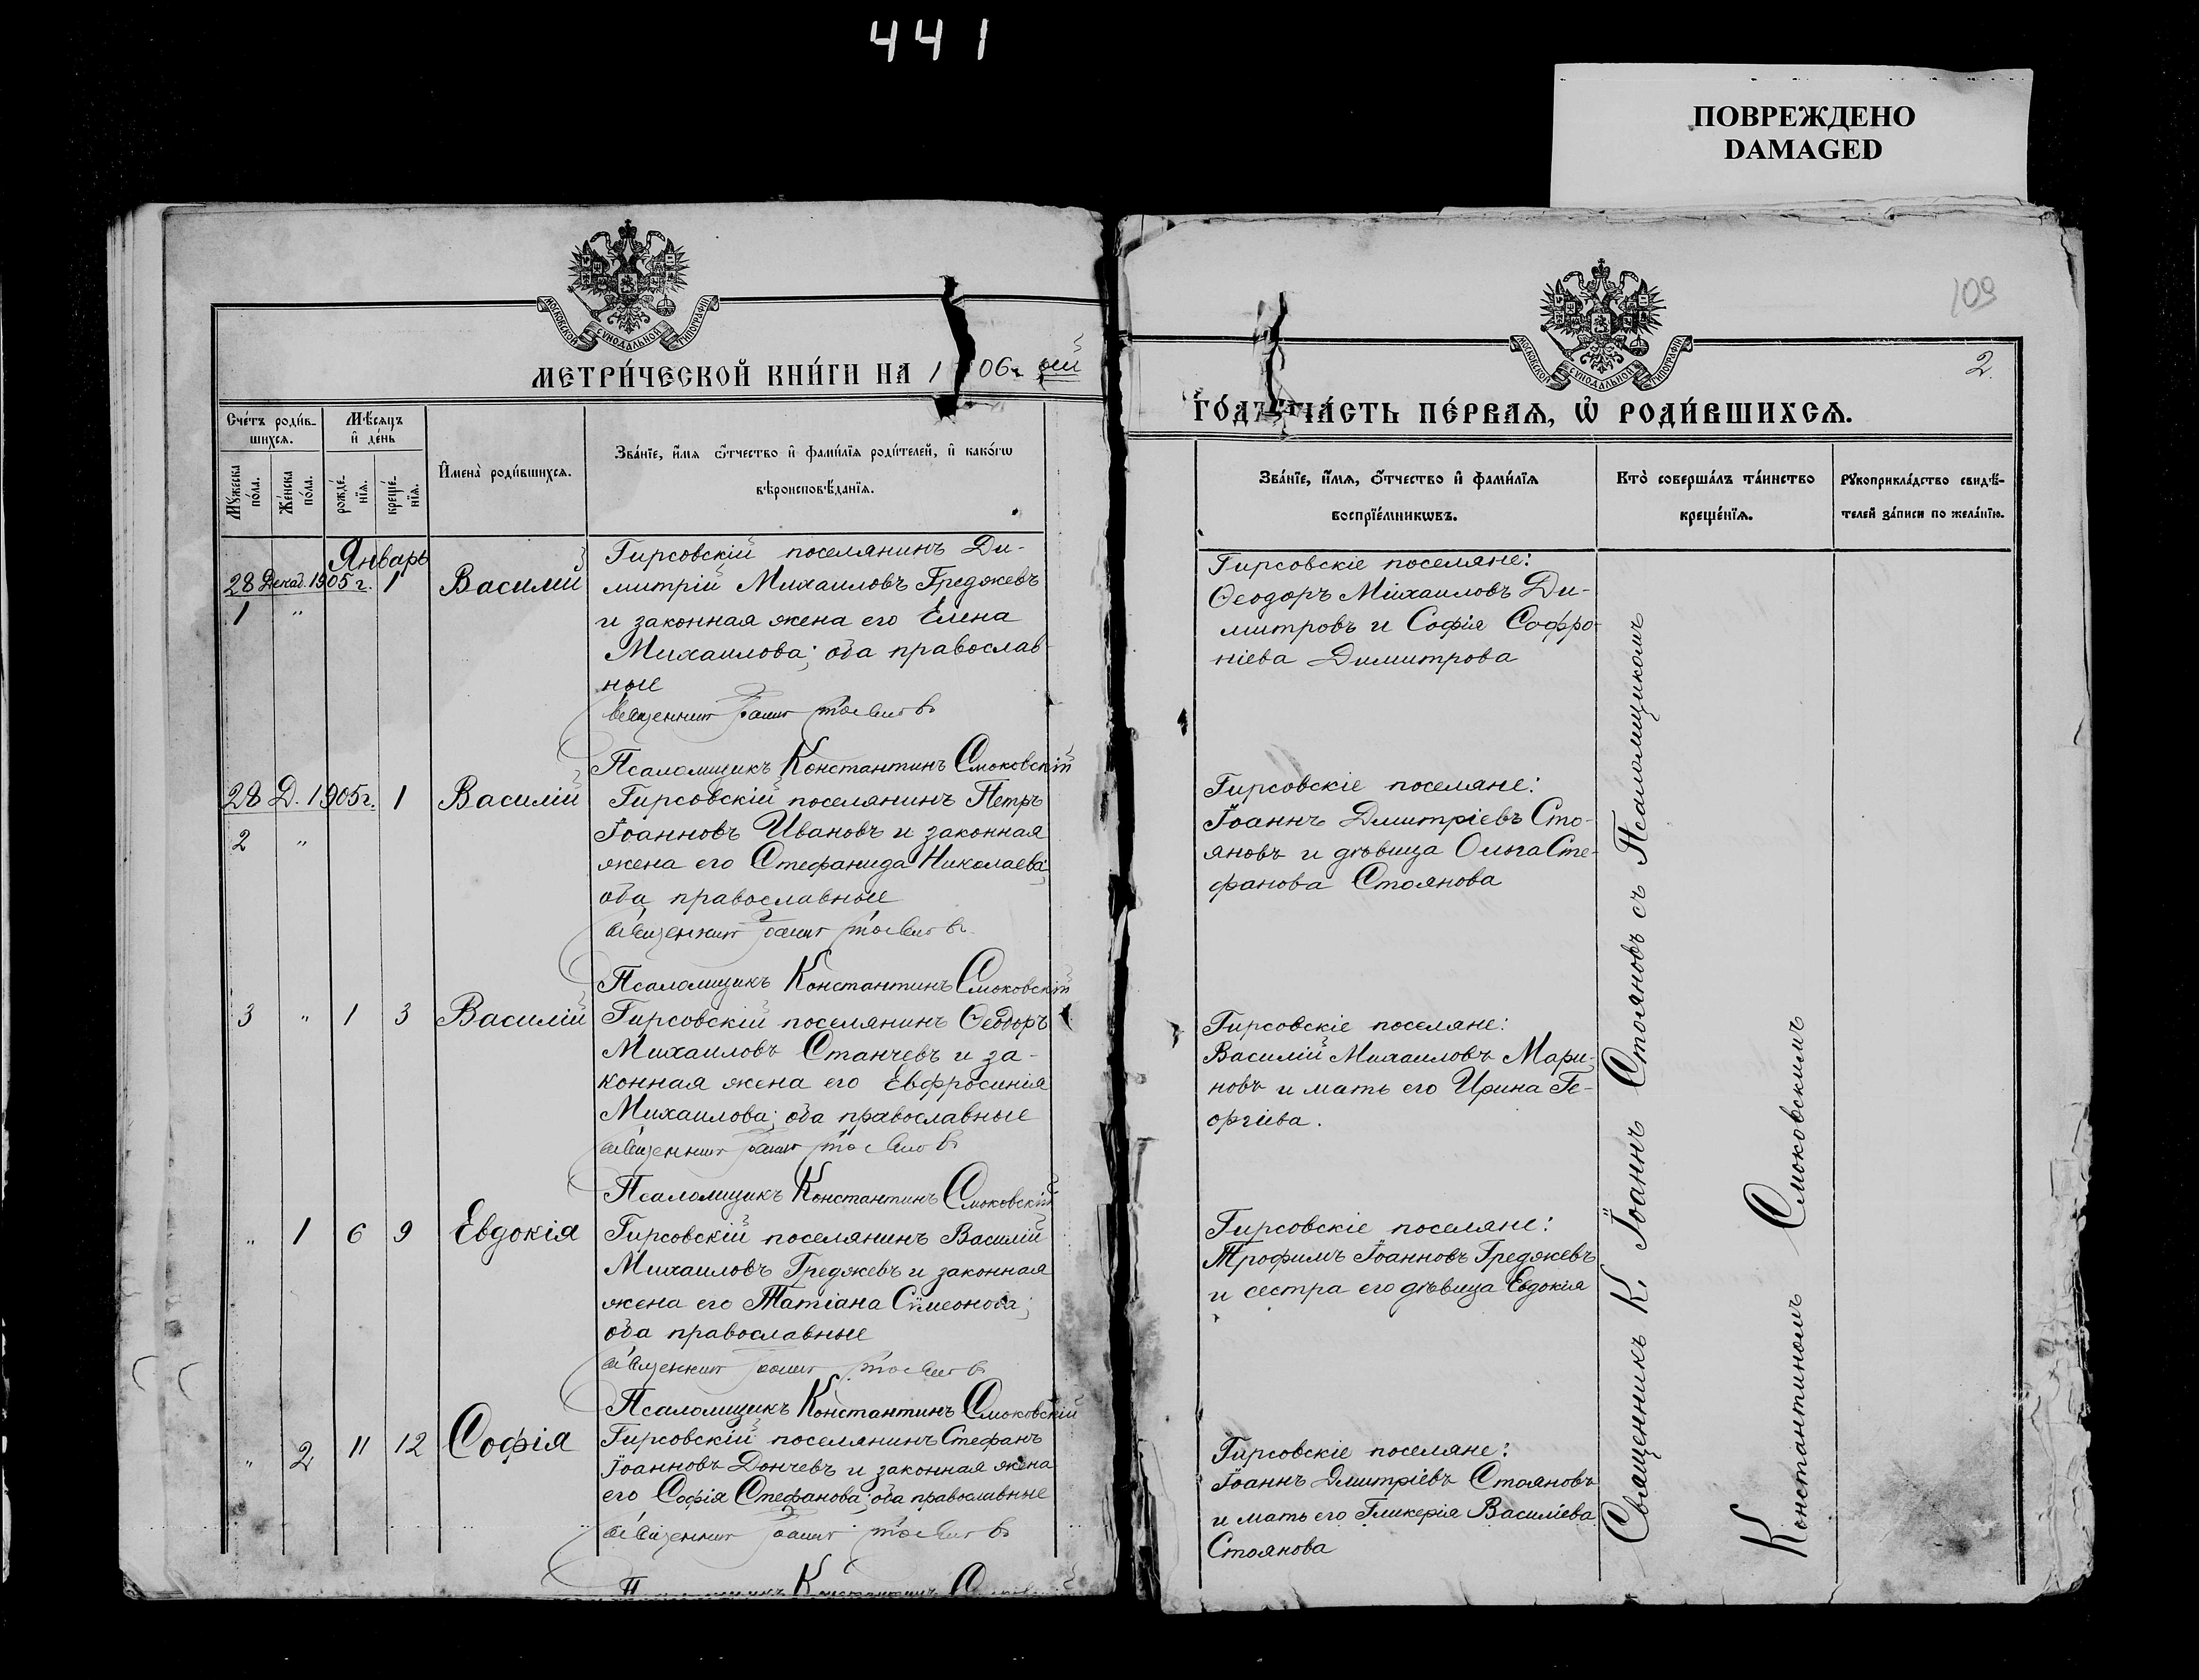 441
ПОВРЕЖДЕНО
DAMAGED
МОСКОВСКОЙ СУНОДАЛЬНОЙ ТИПОГРАФІИ
МЕТРИ́ЧЕСКОЙ КНИ́ГИ НА 1 06 г. ый
Сче́тъ роди́в-
шихсѧ.
Мѣ́сѧцъ
и҆ де́нь
Мꙋ́жеска по́ла.
Же́нска по́ла.
рожде́нїѧ.
креще́нїѧ.
И҆мена̀ роди́вшихсѧ.
Зва́нїе, и҆́мѧ ѻ҆́тчество и҆ фами́лїѧ роди́телей, и҆ како́гѡ
вѣроисповѣ́данїѧ.
Январь
28 Декаб. 1905 г. 1 Василій
1 "
Гирсовскій поселянинъ Ди-
митрій Михаиловъ Греджевъ
и законная жена его Елена
Михаилова; оба православ-
ные
Священникъ Іоаннъ Стояновъ
Псаломщикъ Константинъ Смоковскій
28 Д. 1905 г. 1 Василій Гирсовскій поселянинъ Петръ
2 " Іоанновъ Ивановъ и законная
жена его Стефанида Николаева;
оба православные
Священникъ Іоаннъ Стояновъ
Псаломщикъ Константинъ Смоковскій
3 " 1 3 Василій Гирсовскій поселянинъ Ѳеодоръ
Михаиловъ Станчевъ и за-
конная жена его Евфросинія
Михаилова; оба православные
Священникъ Іоаннъ Стояновъ
Псаломщикъ Константинъ Смоковскій
" 1 6 9 Евдокія Гирсовскій поселянинъ Василій
Михаиловъ Греджевъ и законная
жена его Татіана Сѵмеонова;
оба православные
Священникъ Іоаннъ Стояновъ
Псаломщикъ Константинъ Смоковскій
" 2 11 12 Софія Гирсовскій поселянинъ Стефанъ
Іоанновъ Дончевъ и законная жена
его Софія Стефанова; оба православные
Священникъ Іоаннъ Стояновъ
109
2.
МОСКОВСКОЙ СУНОДАЛЬНОЙ ТИПОГРАФІИ
ГО́ДЪ ЧА́СТЬ ПЕ́РВАѦ, Ѡ҆ РОДИ́ВШИХСѦ.
Зва́нїе, и҆́мѧ, ѻ҆́тчество и҆ фами́лїѧ
воспрїе́мникѡвъ.
Кто̀ соверша́лъ та́инство
креще́нїѧ.
Рꙋкоприкла́дство свидѣ́-
телей за́писи по жела́нїю.
Гирсовскіе поселяне:
Ѳеодоръ Михаиловъ Ди-
митровъ и Софія Софро-
ніева Димитрова
Гирсовскіе поселяне:
Іоаннъ Дмитріевъ Сто-
яновъ и дѣвица Ольга Сте-
фанова Стоянова
Гирсовскіе поселяне:
Василій Михаиловъ Мари-
новъ и мать его Ирина Ге-
оргіева.
Гирсовскіе поселяне:
Трофимъ Іоанновъ Греджевъ
и сестра его дѣвица Евдокія
Гирсовскіе поселяне:
Іоаннъ Дмитріевъ Стояновъ
и мать его Гликерія Василіева
Стоянова
Священникъ К. Іоаннъ Стояновъ съ Псаломщикомъ
Константиномъ Смоковскимъ